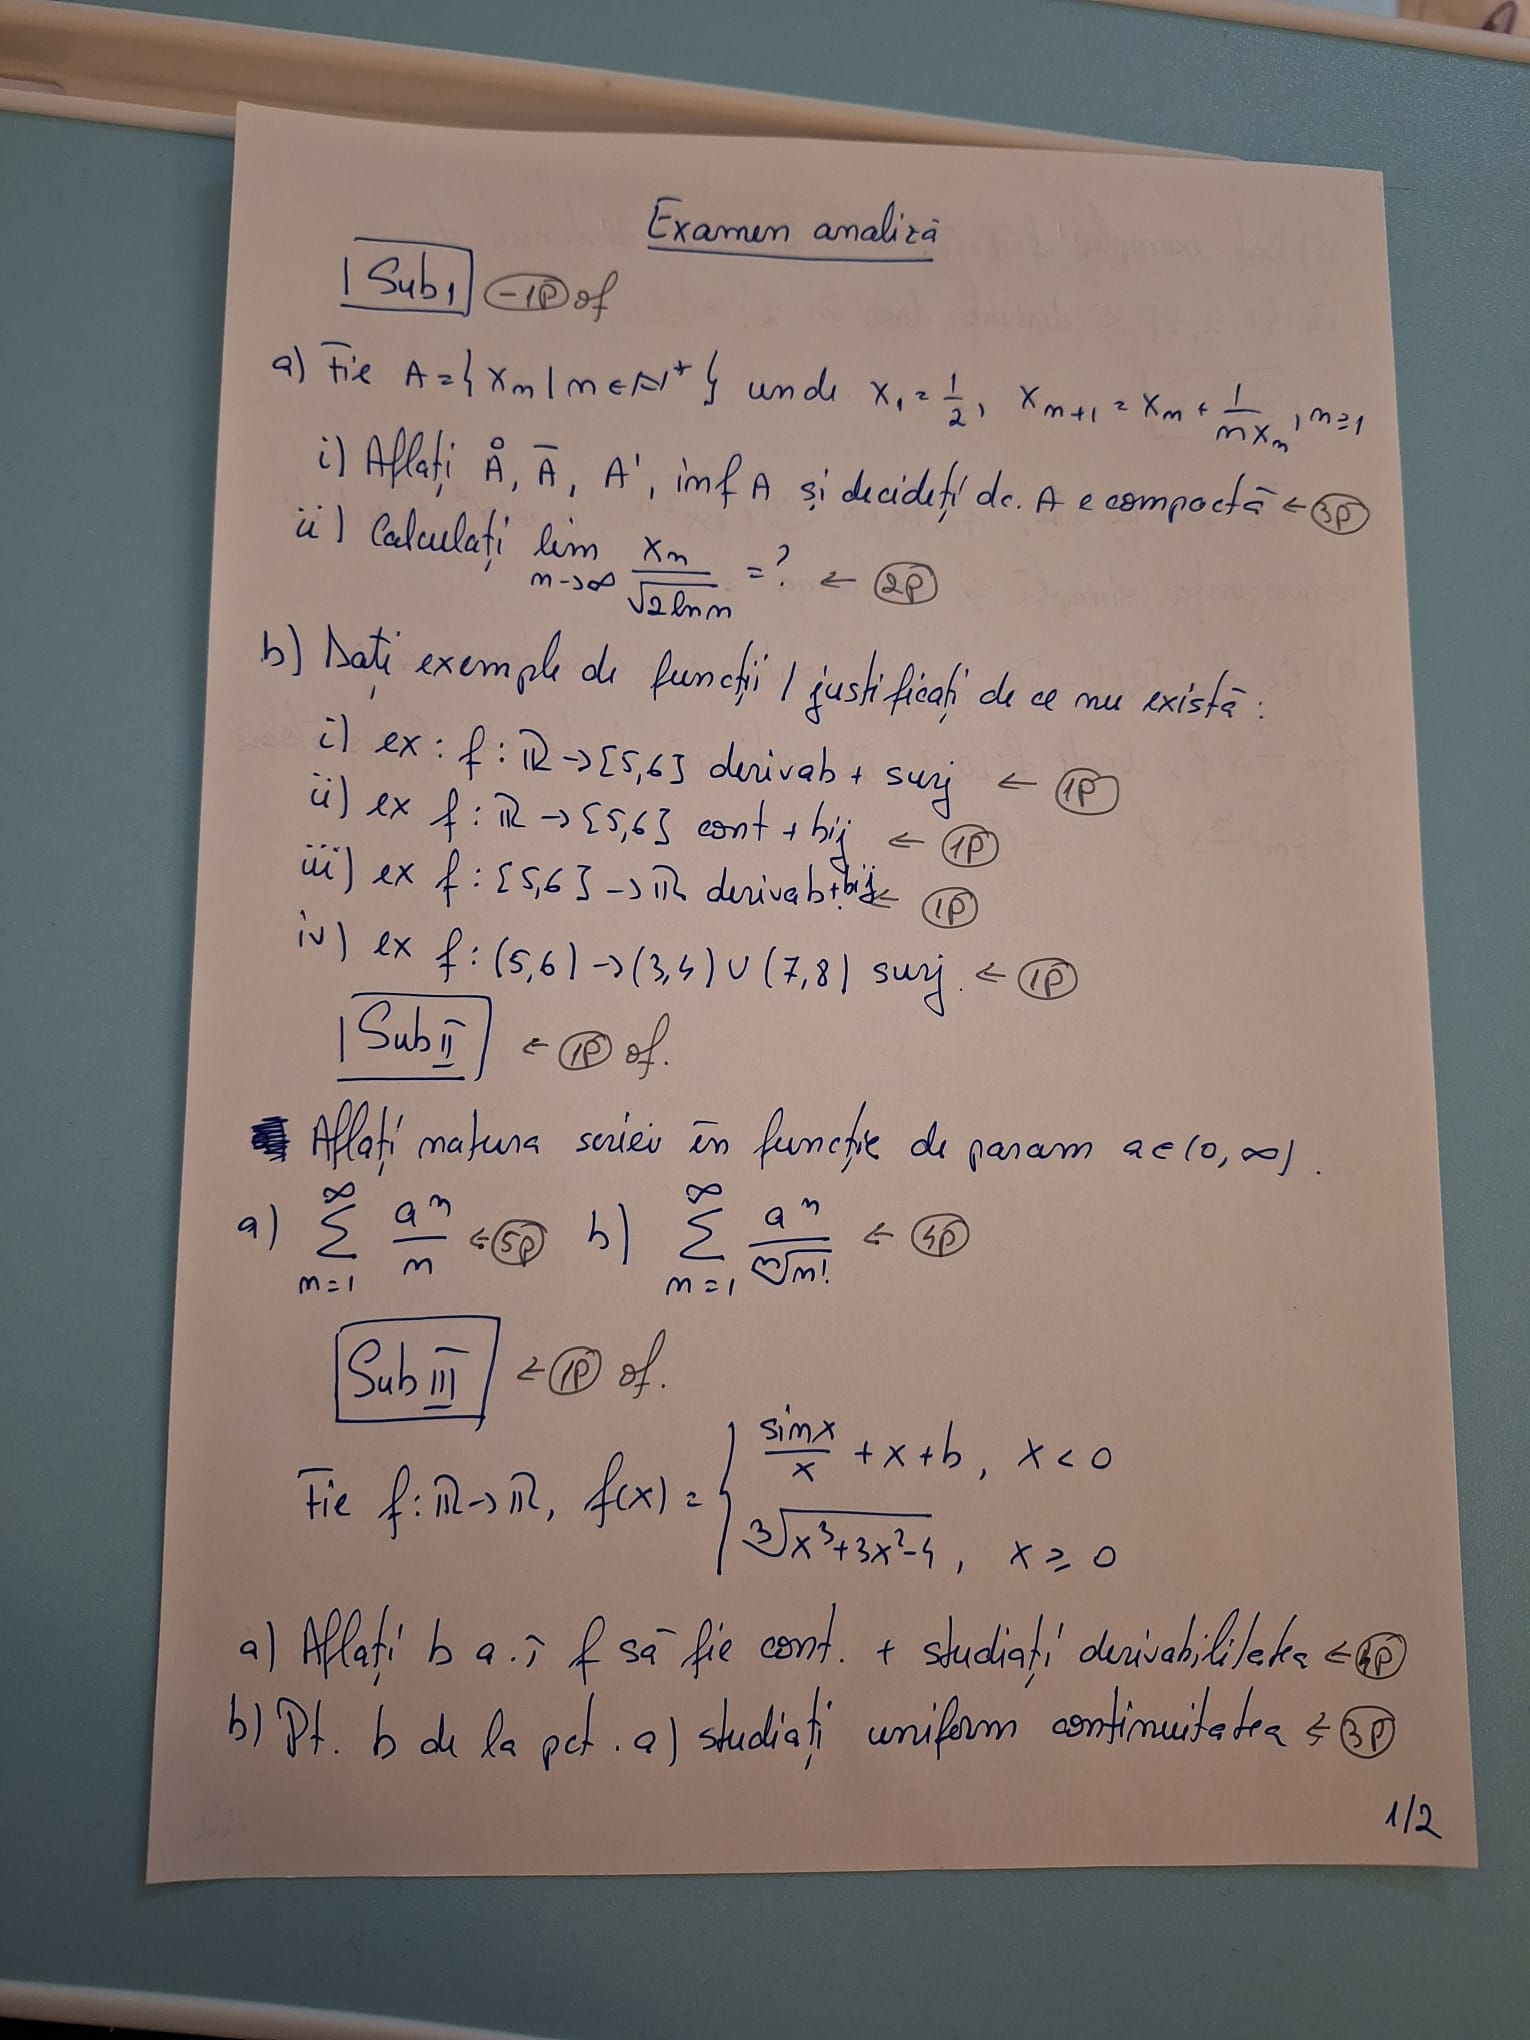 Examen analiză
Sub I -1p of
a) Fie A={xn | n∈ℕ*} unde x1=1/2, xn+1=xn+1/(nxn), n≥1
i) Aflați Å, Ā, A', inf A și decideți dc. A e compactă ← 3p
ii) Calculați lim n→∞ xn/√(2lnn) =? ← 2p
b) Dați exemple de funcții / justificați de ce nu există:
i) ex: f: ℝ→[5,6] derivab + surj ← 1p
ii) ex f: ℝ→[5,6] cont + bij ← 1p
iii) ex f: [5,6]→ℝ derivab+bij ← 1p
iv) ex f: (5,6)→(3,4)∪(7,8) surj. ← 1p
Sub II ← 1p of.
Aflați natura seriei în funcție de param a∈(0,∞).
a) ∞ Σ n=1 aⁿ/n ← 5p b) ∞ Σ n=1 aⁿ/ⁿ√n! ← 4p
Sub III ← 1p of.
Fie f: ℝ→ℝ, f(x) = { sinx/x + x+b, x<0
³√(x³+3x²-4), x≥0
a) Aflați b a.î f să fie cont. + studiați derivabilitatea ←
b) Pt. b de la pct. a) studiați uniform continuitatea ← 3p
1/2